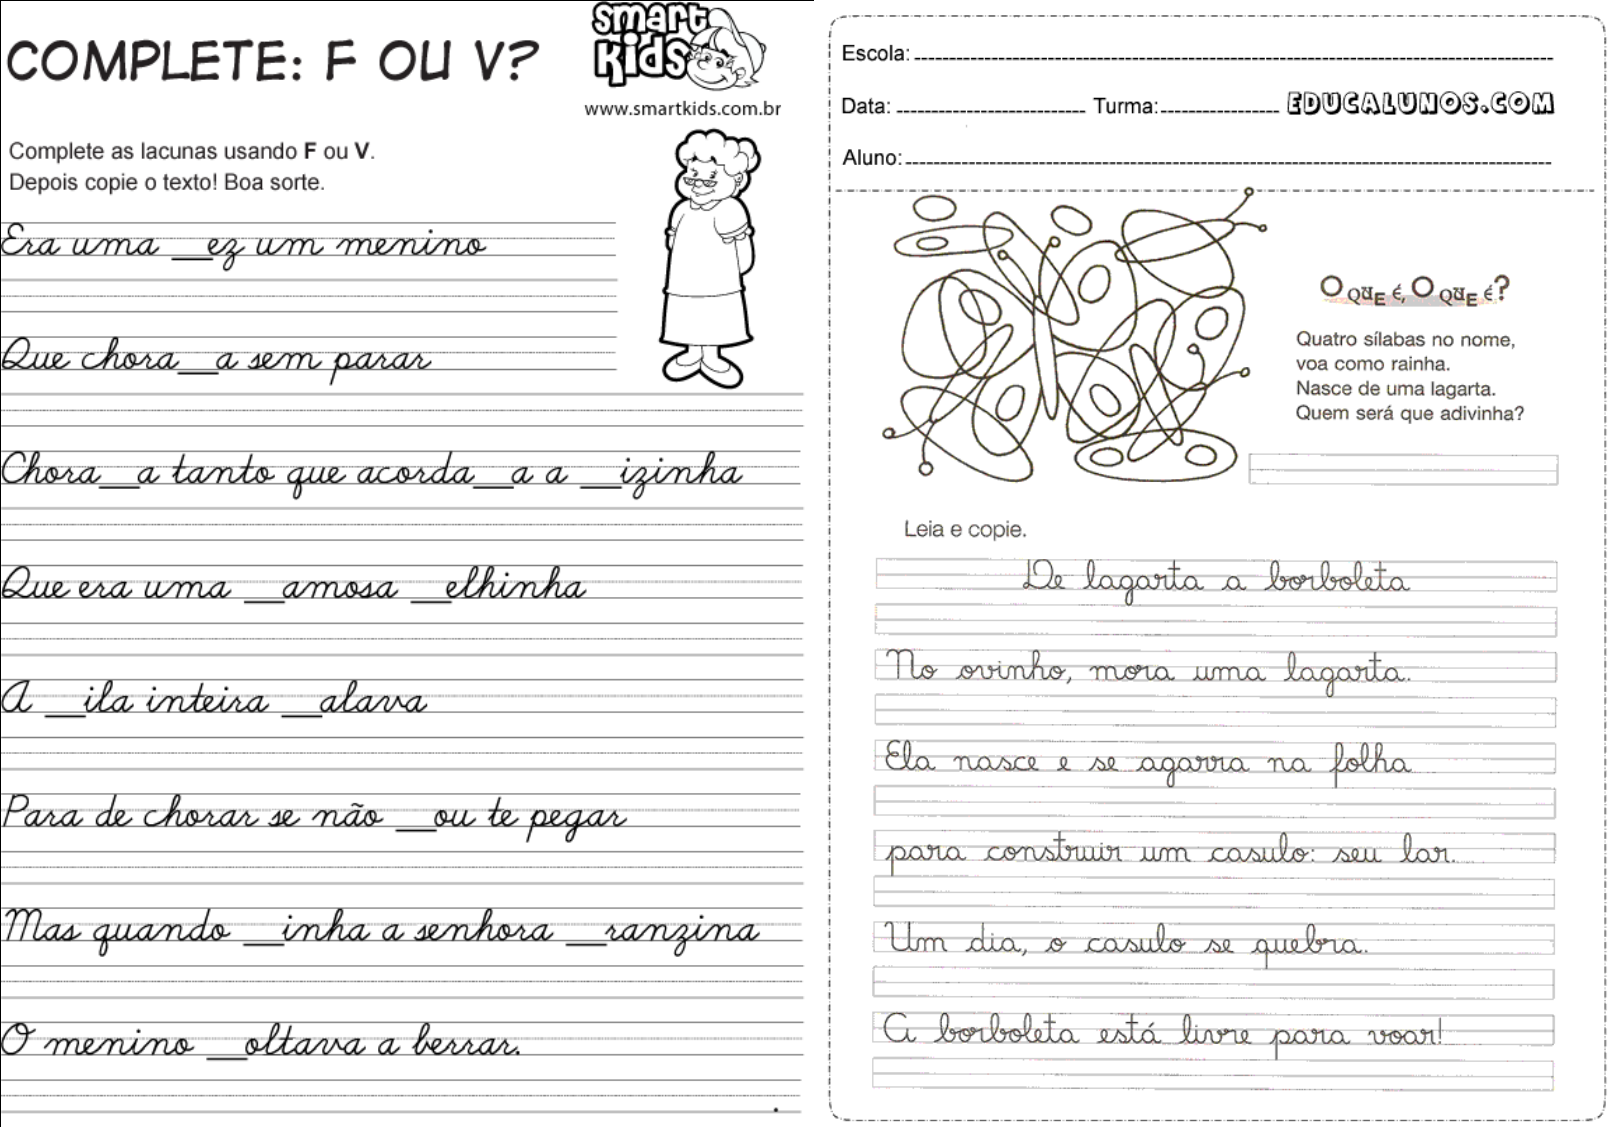 smart
kids
COMPLETE: F OU V?
www.smartkids.com.br
Complete as lacunas usando F ou V.
Depois copie o texto! Boa sorte.
Era uma __ez um menino
Que chora__a sem parar
Chora__a tanto que acorda__a a __izinha
Que era uma __amosa __elhinha
A __ila inteira __alava
Para de chorar se não __ou te pegar
Mas quando __inha a senhora __ranzina
O menino __oltava a berrar.
Escola:
Data: Turma: EDUCALUNOS.COM
Aluno:
O QUE É, O QUE É?
Quatro sílabas no nome,
voa como rainha.
Nasce de uma lagarta.
Quem será que adivinha?
Leia e copie.
De lagarta a borboleta
No ovinho, mora uma lagarta.
Ela nasce e se agarra na folha
para construir um casulo: seu lar.
Um dia, o casulo se quebra.
A borboleta está livre para voar!